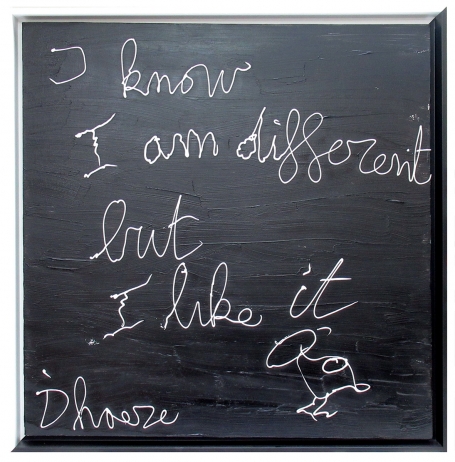 I know
I am different
but
I like it
Dhoeze